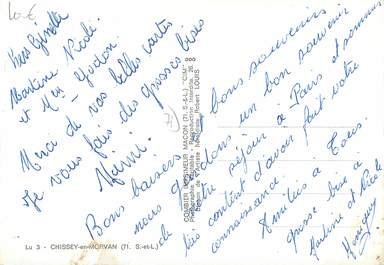 10 €
Martine Kiki
et Mme Godon
Merci de vos belles cartes
Je vous fais des grosses bises
Mimi.
Bons baisers
bons souvenirs
nous gardons un bon souvenir
de votre séjour à Paris et sommes
très content d'avoir fait votre
connaissance
Amitiés à Tous
grosse bise à
Martine et Kiki
COMBIER IMPRIMEUR MACON (71. S.-et-L.) "CIM"
Photographie véritable - Reproduction Interdite
Dessin de l'Artiste Robert LOUIS
Lu 3 - CHISSEY-en-MORVAN (71. S.-et-L.)